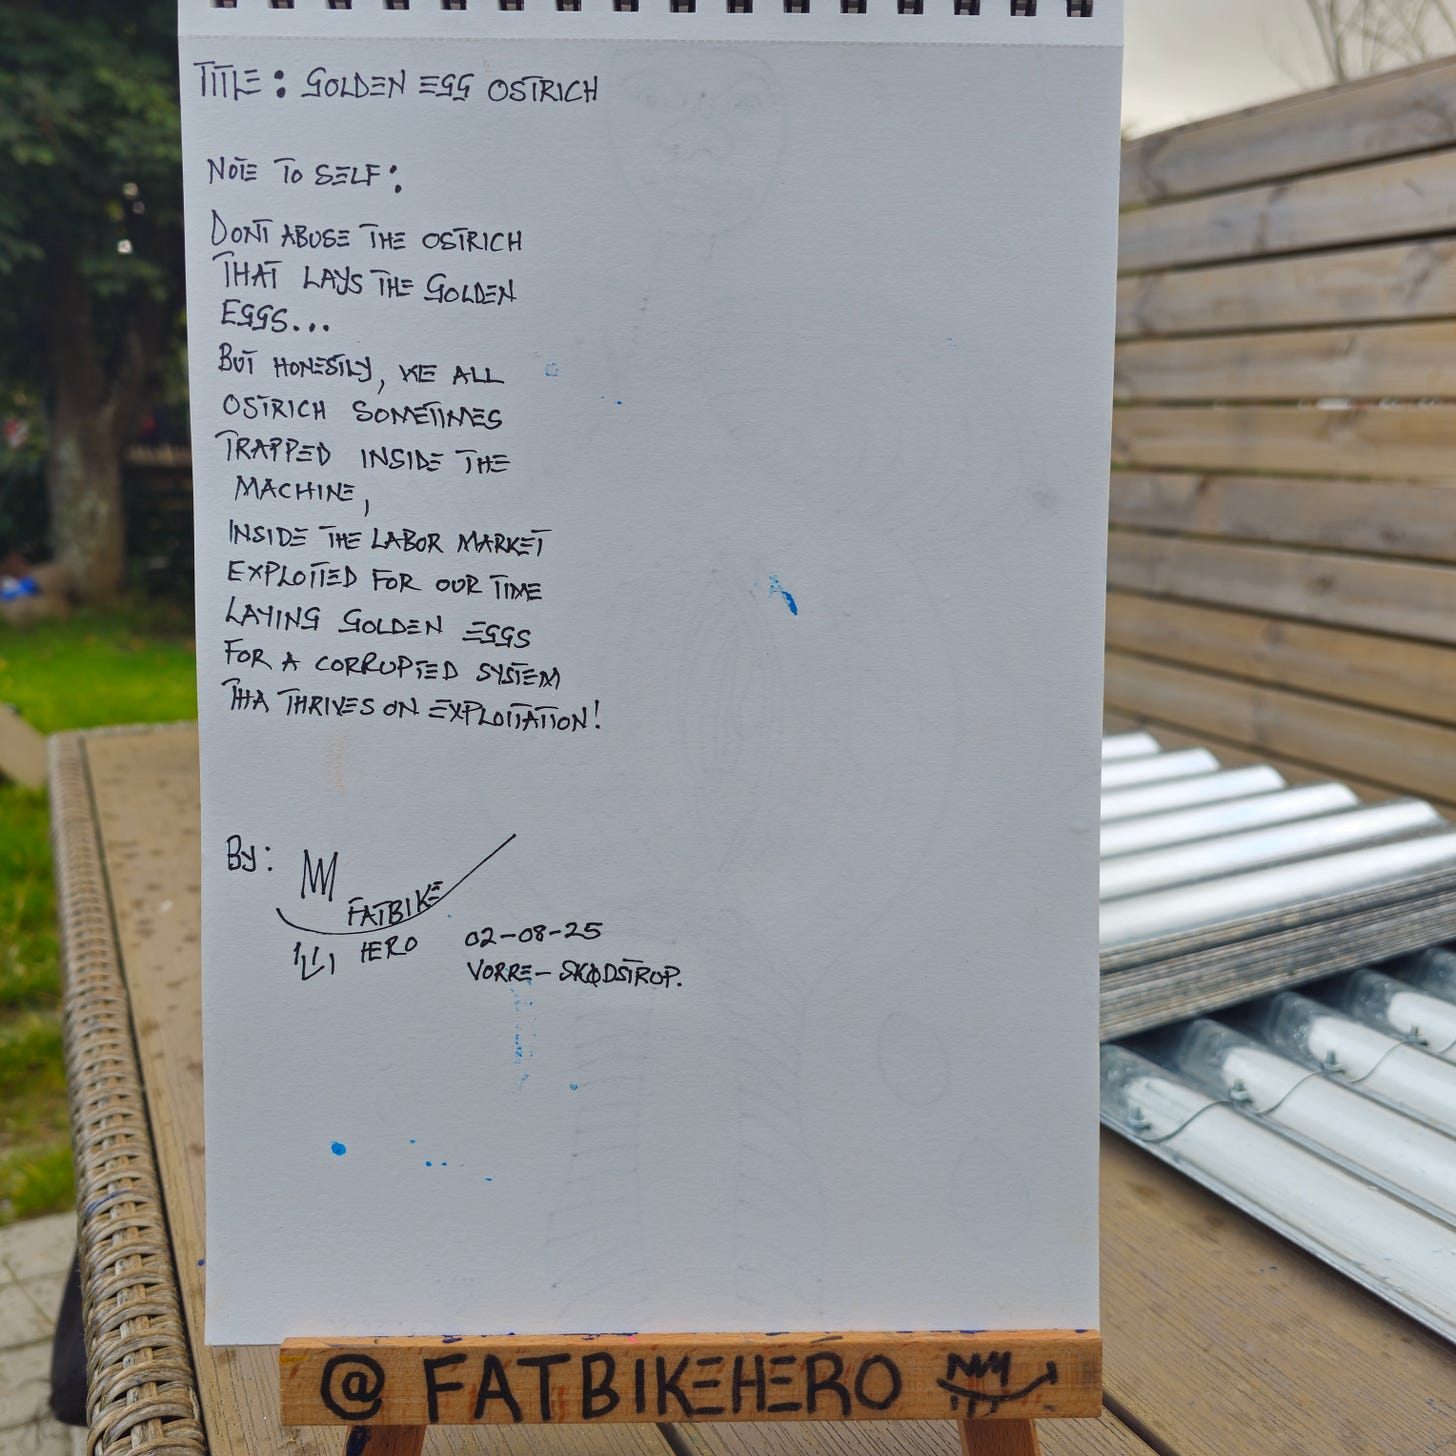 TITLE: GOLDEN EGG OSTRICH
NOTE TO SELF:
DONT ABUSE THE OSTRICH
THAT LAYS THE GOLDEN
EGGS...
BUT HONESTLY, WE ALL
OSTRICH SOMETIMES
TRAPPED INSIDE THE
MACHINE,
INSIDE THE LABOR MARKET
EXPLOITED FOR OUR TIME
LAYING GOLDEN EGGS
FOR A CORRUPTED SYSTEM
THA THRIVES ON EXPLOITATION!
By:
FATBIKE
HERO
02-08-25
VORRE- SKØDSTROP.
@ FATBIKEHERO